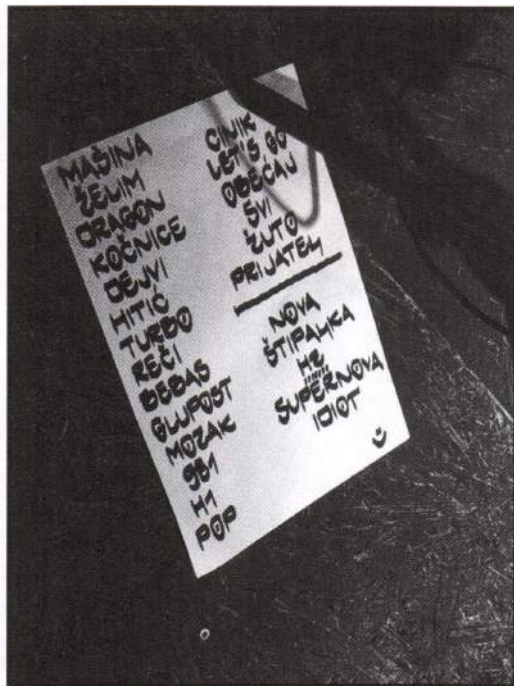 MAŠINA
ŽELIM
DRAGON
KOČNICE
DEJVI
HITIĆ
TURBO
REČI
BEBAS
GLUPOST
MOZAK
981
H1
POP
CINIK
LET'S GO
OBEĆAJ
SVI
ŽUTO
PRIJATELJ
NOVA
ŠTIPALJKA
H2
SUPERNOVA
IDIOT